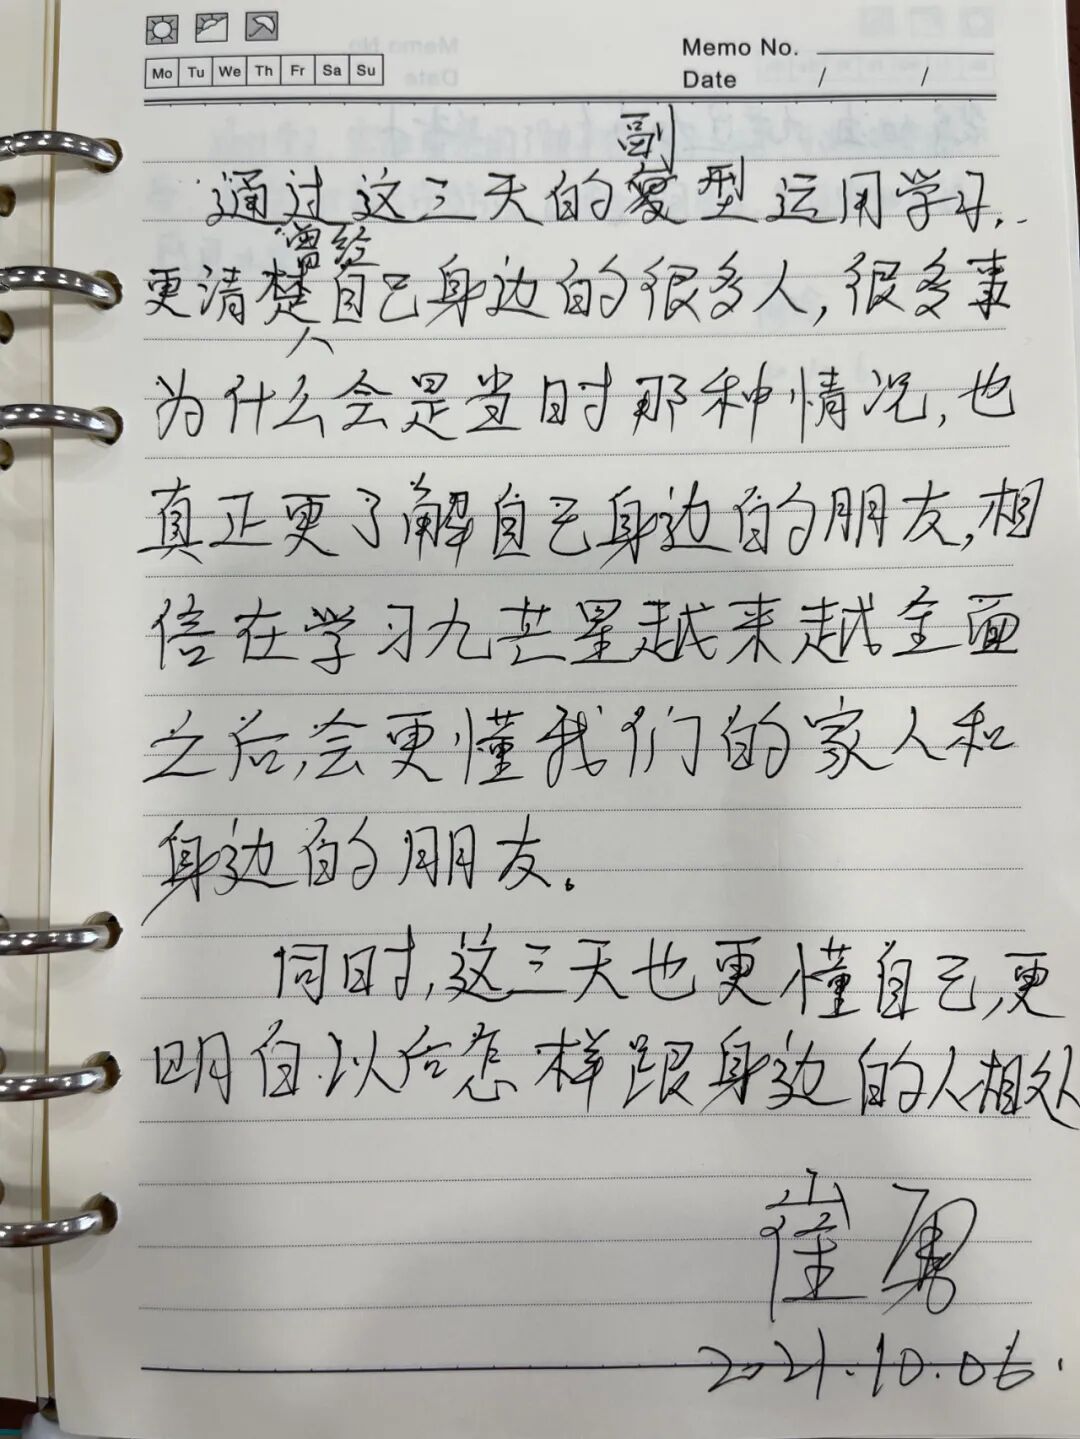 Memo No.
Mo Tu We Th Fr Sa Su
Date / /
副
通过这三天的变型运用学习,
曾经
更清楚自己身边的很多人,很多事
人
为什么会是当时那种情况,也
真正更了解自己身边的朋友,相
信在学习九芒星越来越全面
之后,会更懂我们的家人和
身边的朋友。
同时,这三天也更懂自己,更
明白以后怎样跟身边的人相处
崔勇
2021.10.06.